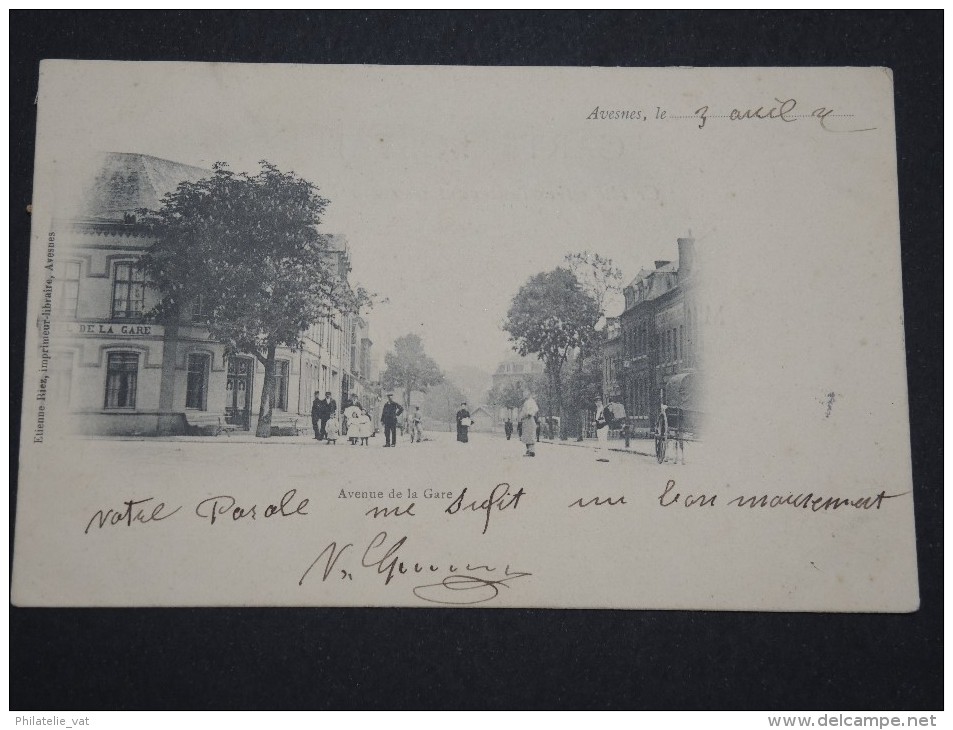 Avesnes, le 3 avril
Etienne Riez, imprimeur-libraire, Avesnes
DE LA GARE
Avenue de la Gare
votre Parole me sufit un bon mouvement
Philatelie_vat
www.delcampe.net